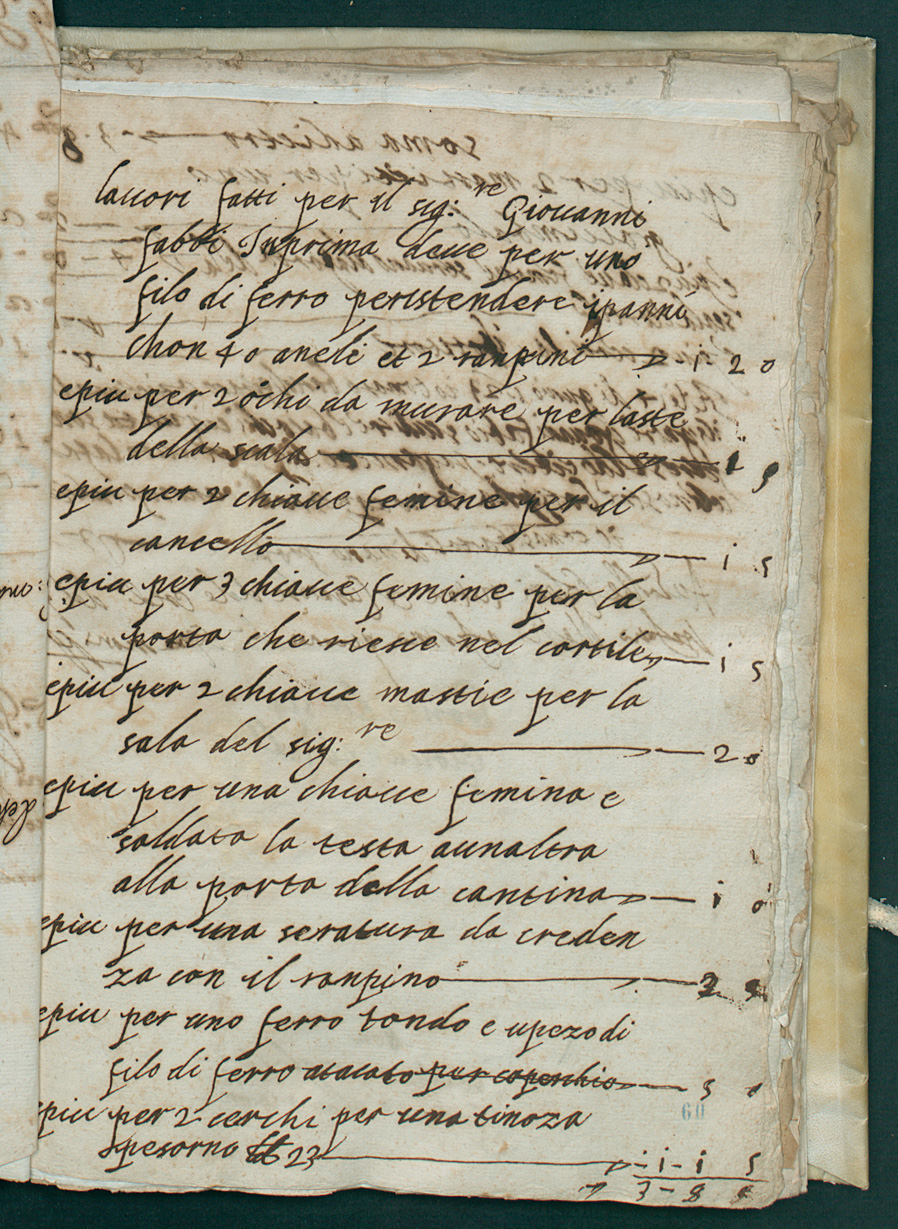 lauori fatti per il sig:re Giouanni
fabbi Inprima deue per uno
filo di ferro peristendere ipanni
chon 40 aneli et 2 ranpini - 1 - 2 0
epiu per 2 ochi da murare per laste
della scala 1 5
epiu per 2 chiaue femine per il
cancello 1 5
epiu per 3 chiaue femine per la
porta che riesce nel cortile 1 5
epiu per 2 chiaue mastie per la
sala del sig:re 2 0
epiu per una chiaue femina e
saldato la testa aunaltra
alla porta della cantina 1 0
epiu per una seratura da creden
za con il ranpino
epiu per uno ferro tondo e upezo di
filo di ferro atacato per coperchio 5 0
epiu per 2 cerchi per una tinoza
pesorno 23 - 1 - 1 5
3 - 8 5
60